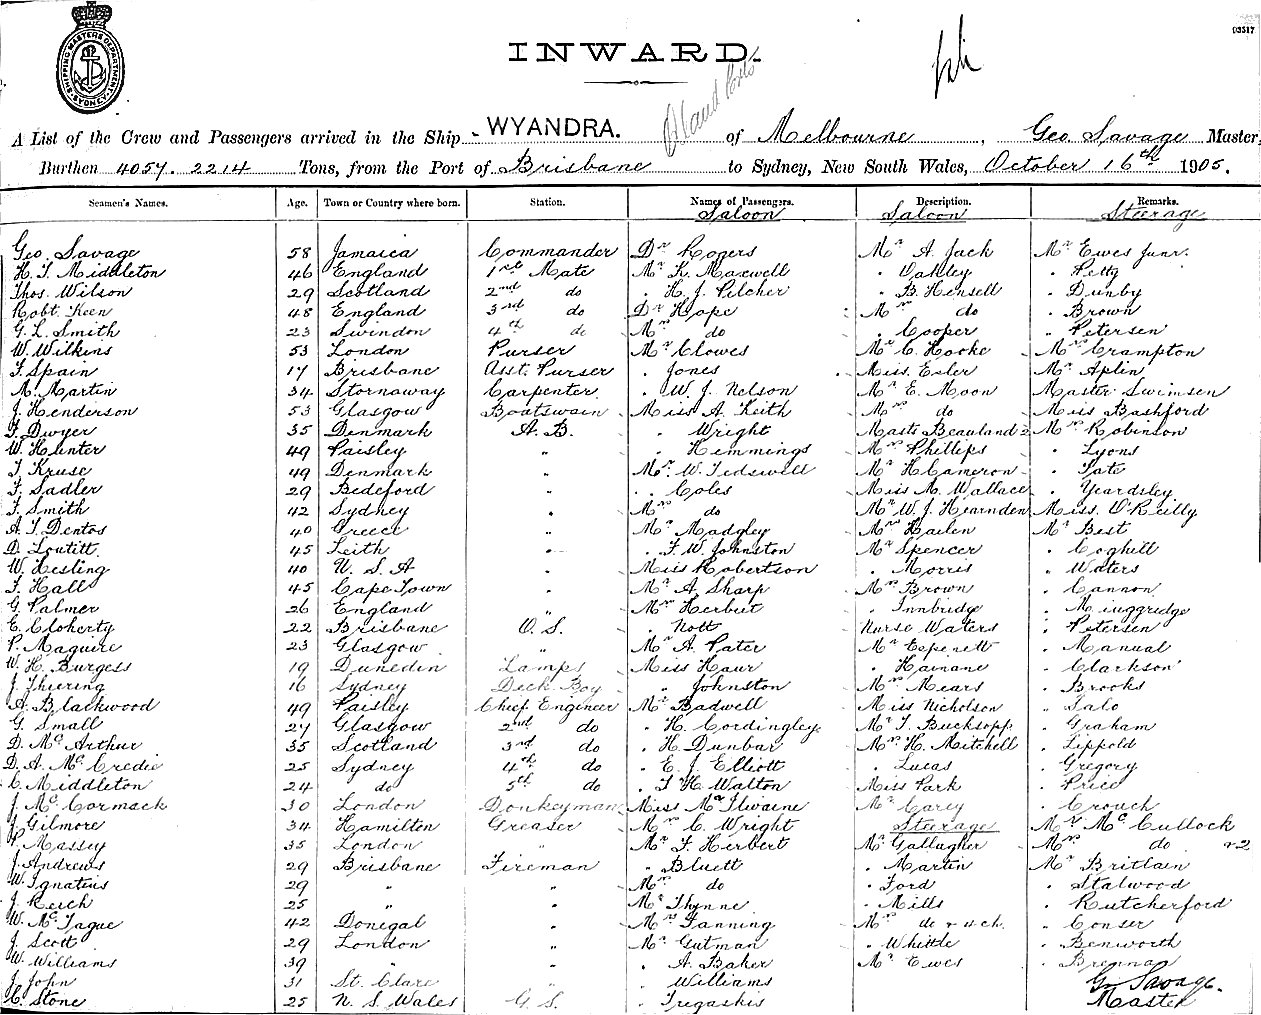 SHIPPING MASTERS DEPARTMENT SYDNEY
03517
INWARD.
A List of the Crew and Passengers arrived in the Ship WYANDRA. of Melbourne, Geo. Savage Master,
Burthen 4057. 2214 Tons, from the Port of Brisbane to Sydney, New South Wales, October 16th 1905.
Seamen's Names. Age. Town or Country where born. Station. Names of Passengers. Description. Remarks.
Saloon Saloon Steerage
Geo. Savage 58 Jamaica Commander Dr Rogers Mr A. Jack Mr Ewes Junr.
H. T. Middleton 46 England 1st Mate Mr K. Maxwell " Oakley " Petty
Thos. Wilson 29 Scotland 2nd do " H. J. Pilcher " B. Hensell " Dunby
Robt. Keen 48 England 3rd do Dr Hope Mrs do " Brown
G. L. Smith 23 Swindon 4th do Mrs do " Cooper " Petersen
W. Wilkins 53 London Purser Mr Clowes Mr C. Hooke Mrs Crampton
F. Spain 17 Brisbane Asst. Purser " Jones Miss Esler Mr Aplin
M. Martin 34 Stornaway Carpenter " W. J. Nelson Mr E. Moon Master Swimsen
J. Henderson 53 Glasgow Boatswain Miss A. Keith Mrs do Miss Bashford
F. Dwyer 35 Denmark A. B. " Wright Masts Beauland 2 Mrs Robinson
W. Hunter 49 Paisley " " Hemmings Mrs Phillips " Lyons
T. Kruse 49 Denmark " Mr W. Tedswell Mr H. Cameron " Tate
F. Sadler 29 Bedeford " " Coles Miss M. Wallace " Yeardsley
F. Smith 42 Sydney " Mrs do Mr W. J. Hearnden Miss O'Reilly
A. T. Dentos 40 Greece " Mr Madgley Mrs Hailen Mr Best
D. Loutitt 45 Leith " " F. W. Johnston Mr Spencer " Coghill
W. Hesling 40 U. S. A " Miss Robertson " Morris " Waters
F. Hall 45 Cape Town " Mr A. Sharp Mrs Brown " Cannon
G. Palmer 26 England " Mrs Herbert " Innbridge " Muggridge
E. Cloherty 22 Brisbane O. S. " Nott Nurse Waters " Petersen
P. Maguire 23 Glasgow " Mr A. Pater Mr " Manual
W. H. Burgess 19 Dunedin Lamps Miss Haur " Hainane " Clarkson
J. Thiering 16 Sydney Deck Boy " Johnston Mrs Mears " Brooks
A. Blackwood 49 Paisley Chief Engineer Mr Badwell Miss Nicholson " Salo
G. Small 27 Glasgow 2nd do " H. Cordingley Mr T. Bucksopp " Graham
D. McArthur 35 Scotland 3rd do " H. Dunbar Mrs H. Mitchell " Lippold
D. A. McCredie 25 Sydney 4th do " E. J. Elliott " Lucas " Gregory
C. Middleton 24 do 5th do " T. H. Walton Miss Park " Price
J. McCormack 30 London Donkeyman Miss McIlwaine Mr Carey " Crouch
J. Gilmore 34 Hamilton Greaser Mrs C. Wright Steerage Mr McCullock
P. Massey 35 London " Mr F. Herbert Mr Gallagher Mrs do & 2
J. Andrews 29 Brisbane Fireman " Bluett " Martin Mr Britlain
W. Ignatius 29 " " Mrs do " Ford " Stalwood
J. Reich 25 " " Mr Thynne " Mills " Rutcherford
W. McTague 42 Donegal " Mrs Fanning Mrs do & 4 ch. " Conser
J. Scott 29 London " Mr Gutman " Whittle " Benworth
W. Williams 39 " " " A. Baker Mr Ewes " Brennan
J. John 31 St. Clare " " Williams G. Savage.
C. Stone 25 N. S. Wales G. S. " Tregaskis Master